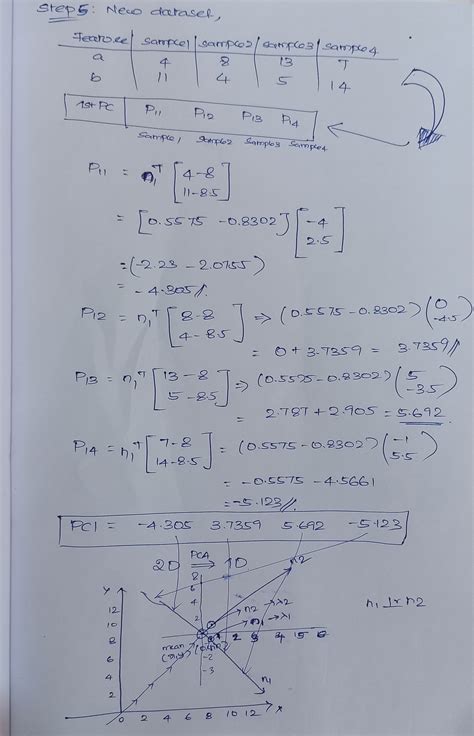 Step 5: New dataset,
Feature | sample1 | sample2 | sample3 | sample4
a 4 8 13 7
b 11 4 5 14
1st PC | P11 P12 P13 P14
Sample1 Sample2 Sample3 Sample4
P11 = n1ᵀ [4-8
11-8.5]
= [0.5575 -0.8302] [-4
2.5]
= (-2.23 - 2.0755)
= -4.305//.
P12 = n1ᵀ [8-8
4-8.5] ⇒ (0.5575 -0.8302) (0
-4.5)
= 0 + 3.7359 = 3.7359//
P13 = n1ᵀ [13-8
5-8.5] ⇒ (0.5575 -0.8302) (5
-3.5)
= 2.787 + 2.905 = 5.692
P14 = n1ᵀ [7-8
14-8.5] = (0.5575 -0.8302) (-1
5.5)
= -0.5575 - 4.5661
= -5.123//.
PC1 = -4.305 3.7359 5.692 -5.123
2D PCA ⇒ 1D
n2
n2 → λ2
n1 → λ1
n1 ⊥r n2
Y 12 10 8 6 4 2
8 6 4 2
1 2 3 4 5 6
mean
-2
-3
n1
0 2 4 6 8 10 12 X